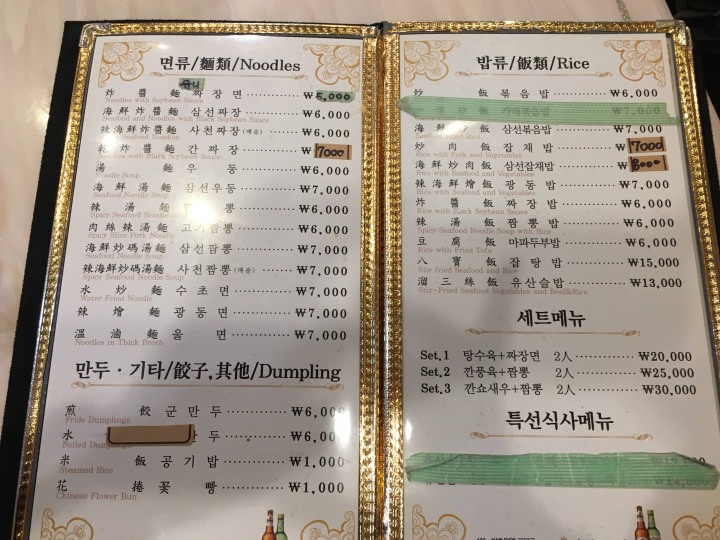 면류/麵類/Noodles
炸醬麵 짜장면 ₩5,000
Noodles with Soybean Sauce
海鮮炸醬麵 삼선짜장 ₩6,000
Seafood and Noodles with Black Soybean Sauce
辣海鮮炸醬麵 사천짜장(매운) ₩6,000
Seafood Noodles
乾炸醬麵 간짜장 ₩7000
Noodles with Black Soybean Sauce
湯麵 우동 ₩6,000
Noodle Soup
海鮮湯麵 삼선우동 ₩7,000
Seafood Noodle Soup
辣湯麵 짬뽕 ₩6,000
Spicy Seafood Noodle Soup
肉絲辣湯麵 고기짬뽕 ₩6,000
Spicy Slice Pork Noodle
海鮮炒碼湯麵 삼선짬뽕 ₩7,000
Seafood Noodle Soup
辣海鮮炒碼湯麵 사천짬뽕(매운) ₩7,000
Spicy Seafood Noodle Soup
水炒麵 수초면 ₩7,000
Water Fried Noodle
辣燴麵 광동면 ₩7,000
溫滷麵 울면 ₩7,000
Noodles in Thick Broth
만두·기타/餃子,其他/Dumpling
煎餃 군만두 ₩6,000
Fride Dumplings
水 만두 ₩6,000
Boiled Dumplings
米飯 공기밥 ₩1,000
Steamed Rice
花捲 꽃빵 ₩1,000
Chinese Flower Bun
밥류/飯類/Rice
炒飯 볶음밥 ₩6,000
₩7,000
海鮮炒飯 삼선볶음밥 ₩7,000
炒肉飯 잡채밥 ₩7000
Rice with Pork and Vegetables
海鮮炒肉飯 삼선잡채밥 ₩8000
Rice with Seafood and Vegetables
辣海鮮燴飯 광동밥 ₩7,000
Rice with Seafood and Vegetables
炸醬飯 짜장밥 ₩6,000
Rice with Black Soybean Sauce
辣湯飯 짬뽕밥 ₩6,000
Spicy Seafood Noodle Soup with Rice
豆腐飯 마파두부밥 ₩6,000
Rice with Fried Tofu
八寶飯 잡탕밥 ₩15,000
Stir fried Seafood and Rice
溜三絲飯 유산슬밥 ₩13,000
Stir-Fried Seafood Vegetables and Beef&Rice
세트메뉴
Set.1 탕수육+짜장면 2人 ₩20,000
Set.2 깐풍육+짬뽕 2人 ₩25,000
Set.3 깐쇼새우+짬뽕 2人 ₩30,000
특선식사메뉴